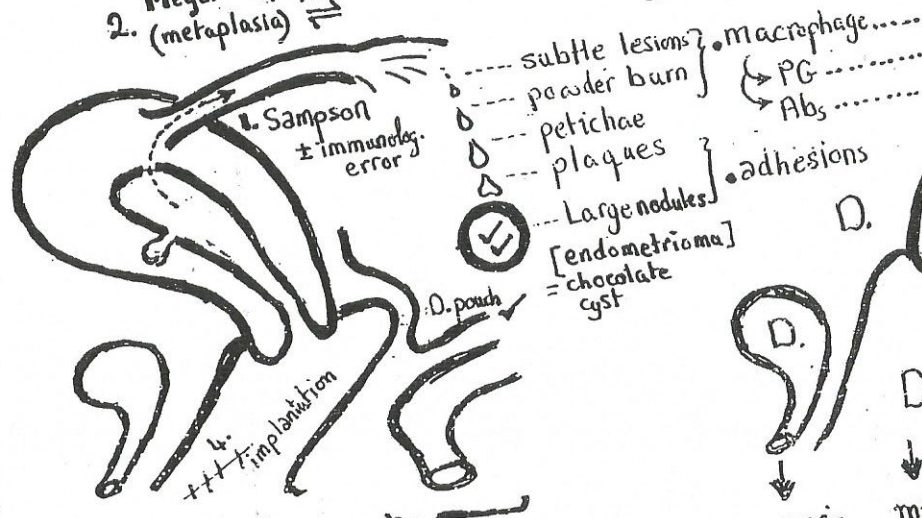 2.
(metaplasia) ⇌
1. Sampson
± immunolog.
error
subtle lesions
powder burn
petichae
plaques
Large nodules
[endometrioma]
= chocolate
cyst
• macrophage......
PG ..........
Abs ..........
• adhesions
D. pouch
4.
implantation
D.
D.
D